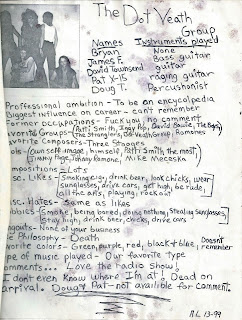 The Dot Veath
Group
Names Instruments played
Bryan None
James F. Bass guitar
David Townsend guitar
Pat Y-15 raging guitar
Doug T. Percushonist
Proffessional ambition - To be an encyclpedia
Biggest influence on career - can't remember
Former occupations - Fuck you, no comments
Favorite Groups - Patti Smith, Iggy Pop, David Bowie, The
The Stranglers, Dot Veath Group, Ramones
avorite Composers - Three Stages
ols - Own self-image, himself, Patti Smith, the most,
Jimmy Page, Johnny Ramone, Mike Meceska
mpositions - Lots
sc. Likes - Smoking cig., drink beer, look chicks, wear
sunglasses, drive cars, get high, be rude,
all the arts, playing, rock out
sc. Hates - Same as likes
obbies - Smoke, being bored, doing nothing, Stealing Sunglasses,
stay high, drink beer, chicks, drive cars
angouts - None of your business
fe Philosophy - Death
vorite colors - Green, purple, red, black + blue Doesn't remember
pe of music played - Our favorite type
omments... Love the radio show!
I don't even know where I'm at! Dead on
arrival. Doug + Pat - not available for comment.
13-99